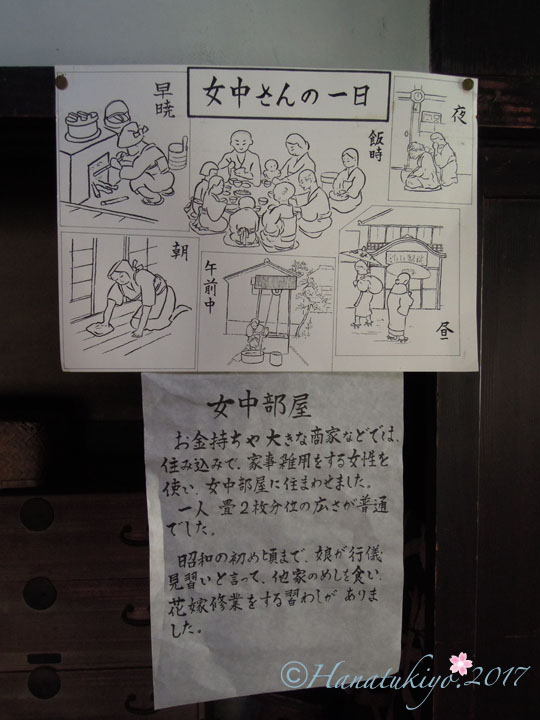 女中さんの一日
早暁
飯時
夜
朝
午前中
昼
女中部屋
お金持ちや大きな商家などでは、
住み込みで、家事雑用をする女性を
使い、女中部屋に住まわせました。
一人 畳2枚分位の広さが普通
でした。
昭和の初め頃まで、娘が行儀
見習いと言って、他家のめしを食い、
花嫁修業をする習わしが ありま
した。
©Hanatukiyo.2017